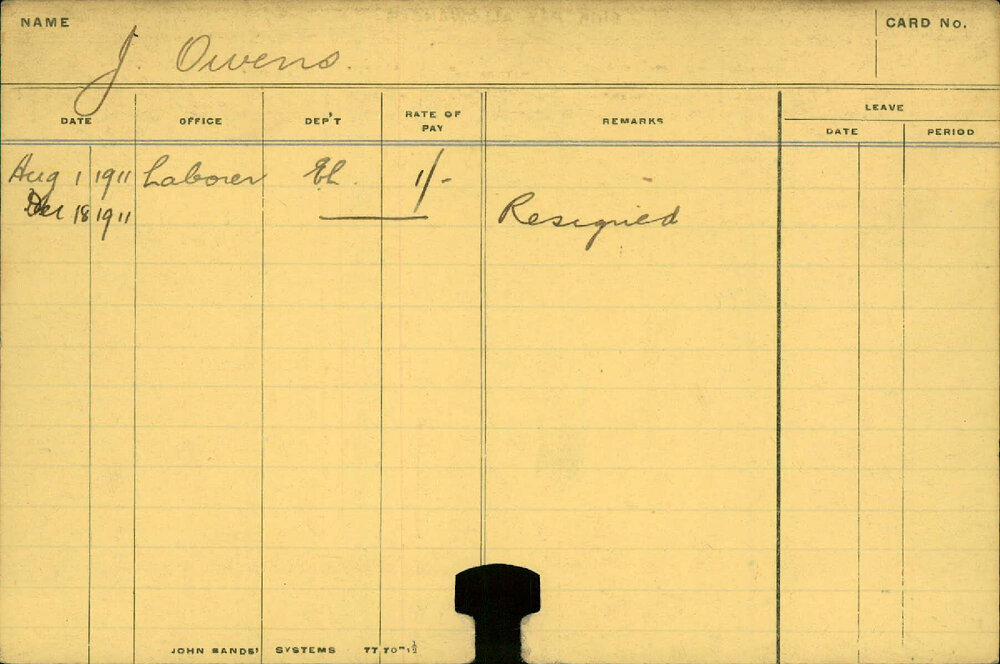 NAME
J. Owens.
CARD No.
DATE OFFICE DEP'T RATE OF PAY REMARKS LEAVE
DATE PERIOD
Aug 1 1911 Laborer El. 11/-
Dec 18 1911 Resigned
JOHN SANDS' SYSTEMS